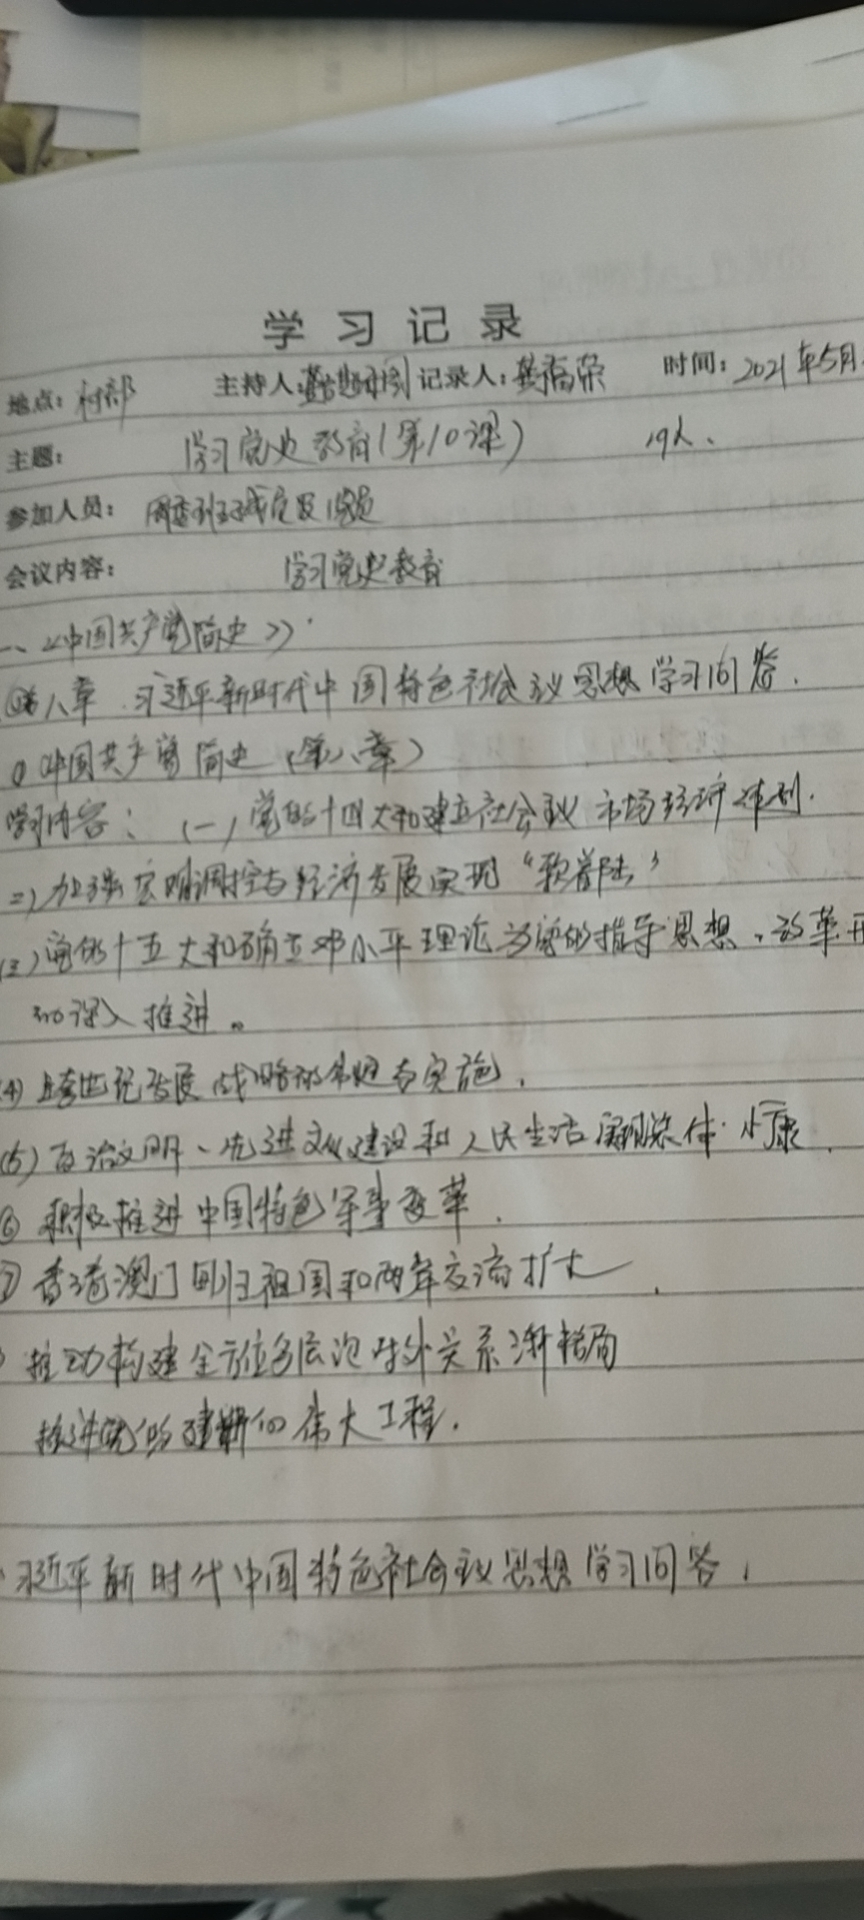 学习记录
地点：村部 主持人： 记录人：龚福荣 时间：2021年5月
主题： 学习党史教育（第10课） 19人、
参加人员：两委班子成员及党员
会议内容： 学习党史教育
一、《中国共产党简史》
第八章 习近平新时代中国特色社会主义思想学习问答．
中国共产党简史（第八章）
学习内容：（一）党的十四大和建立社会主义市场经济体制．
二）加强宏观调控与经济发展实现“软着陆”
（三）党的十五大和确立邓小平理论为党的指导思想，改革开
和深入推进。
(4) 跨世纪发展战略的制定与实施．
(5) 政治文明、先进文化建设和人民生活实现总体小康．
⑥ 积极推进中国特色军事变革．
⑦ 香港澳门回归祖国和两岸交流扩大．
推动构建全方位多层次对外关系新格局
推进党的建设新的伟大工程．
习近平新时代中国特色社会主义思想学习问答．